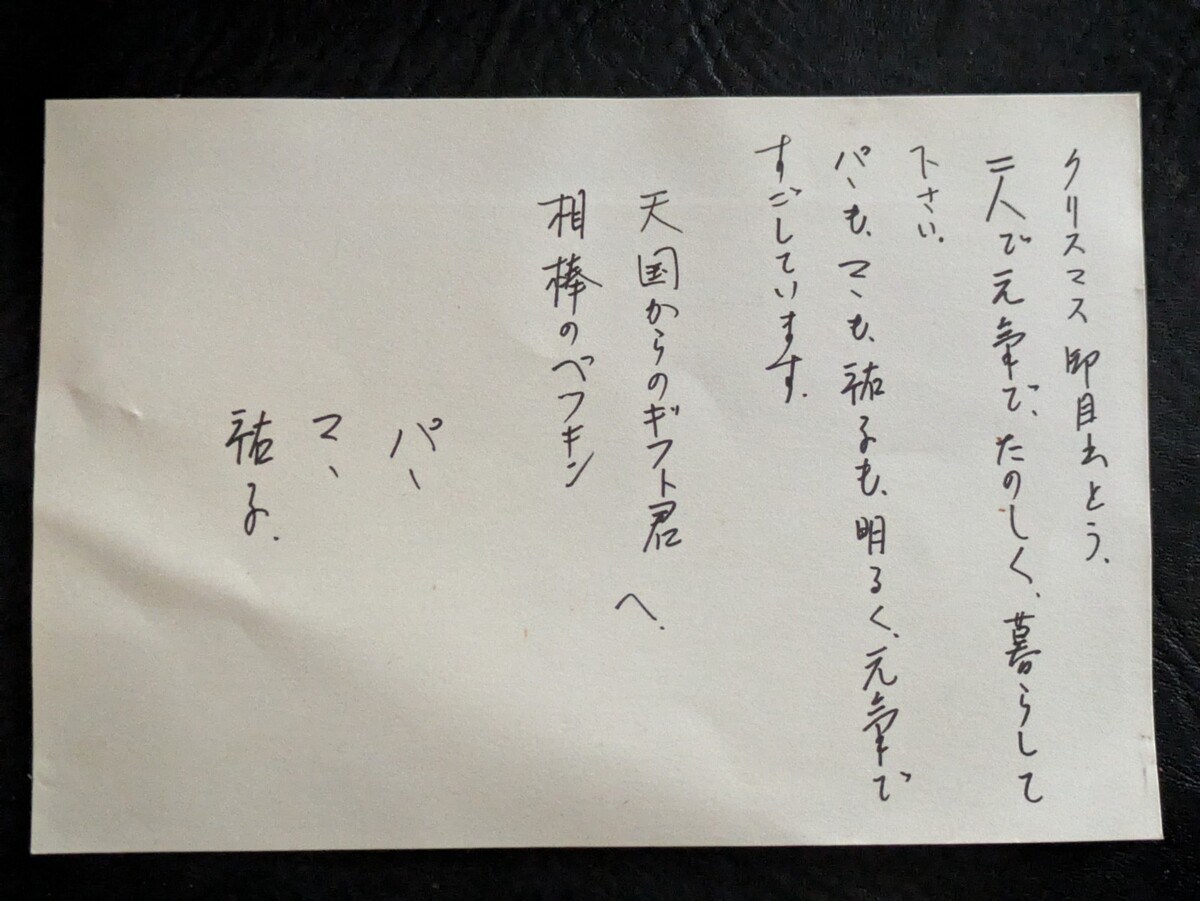 クリスマス御目出とう.
二人で元氣で、たのしく、暮らして
下さい.
パヽも、マヽも、祐子も、明るく、元氣で
すごしています.
天国からのギフト君へ.
相棒のペフキン
パヽ
マヽ
祐子.